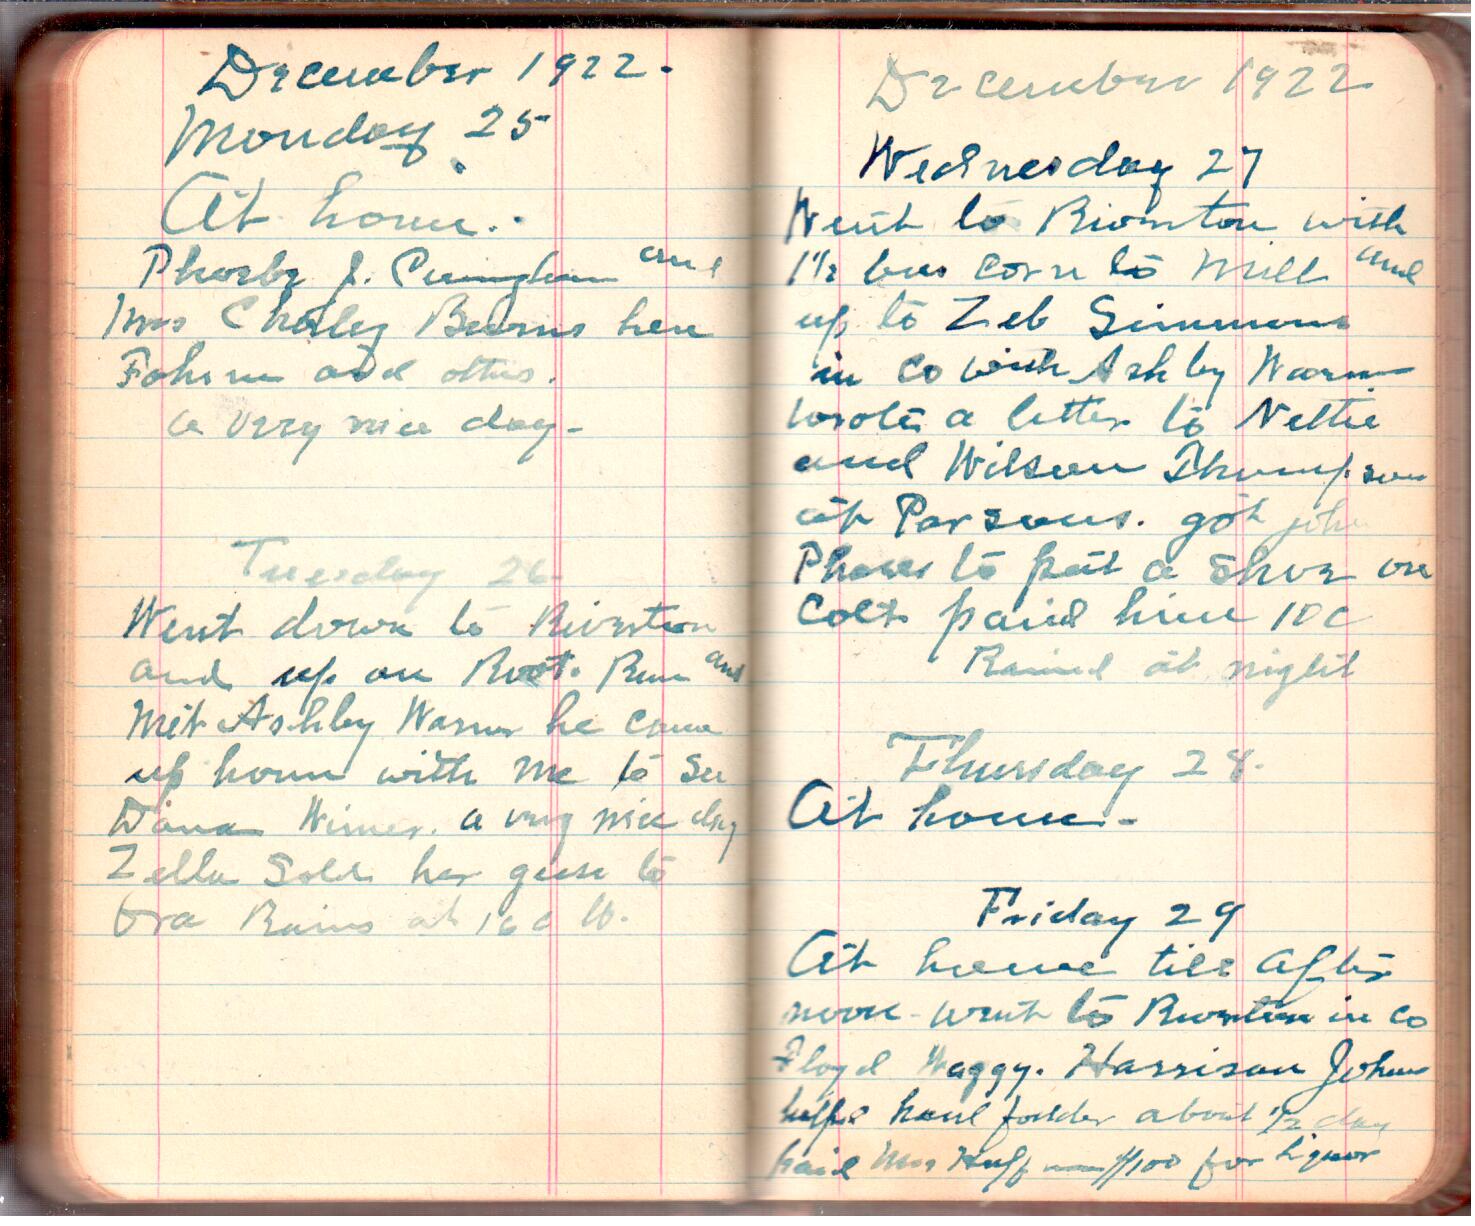 December 1922.
Monday 25
At home.
Phoeby J. Cuningham and
Mrs Charley Burns here
and others.
a very nice day-
Tuesday 26
Went down to Riverton
and up on Root. Run and
Met Ashby Warner he came
up home with me to See
Dana Wimer. a very nice day
Zella Sold her geese to
Ora at 16 c lb.
December 1922
Wednesday 27
Went to Riverton with
1 1/2 bus corn to Mill and
up to Zeb Simmons
in co with Ashby Warner
wrote a letter to Nettie
and Wilson Thompson
at Parsons. got john
to put a Shoe on
Colt paid him 10 c
Rained at night
Thursday 28.
At home.-
Friday 29
At home till after
noon- went to Riverton in co
Floyd Waggy. Harrison Johns
helped haul fodder about 1/2 day
paid Mrs Huff for Liquor